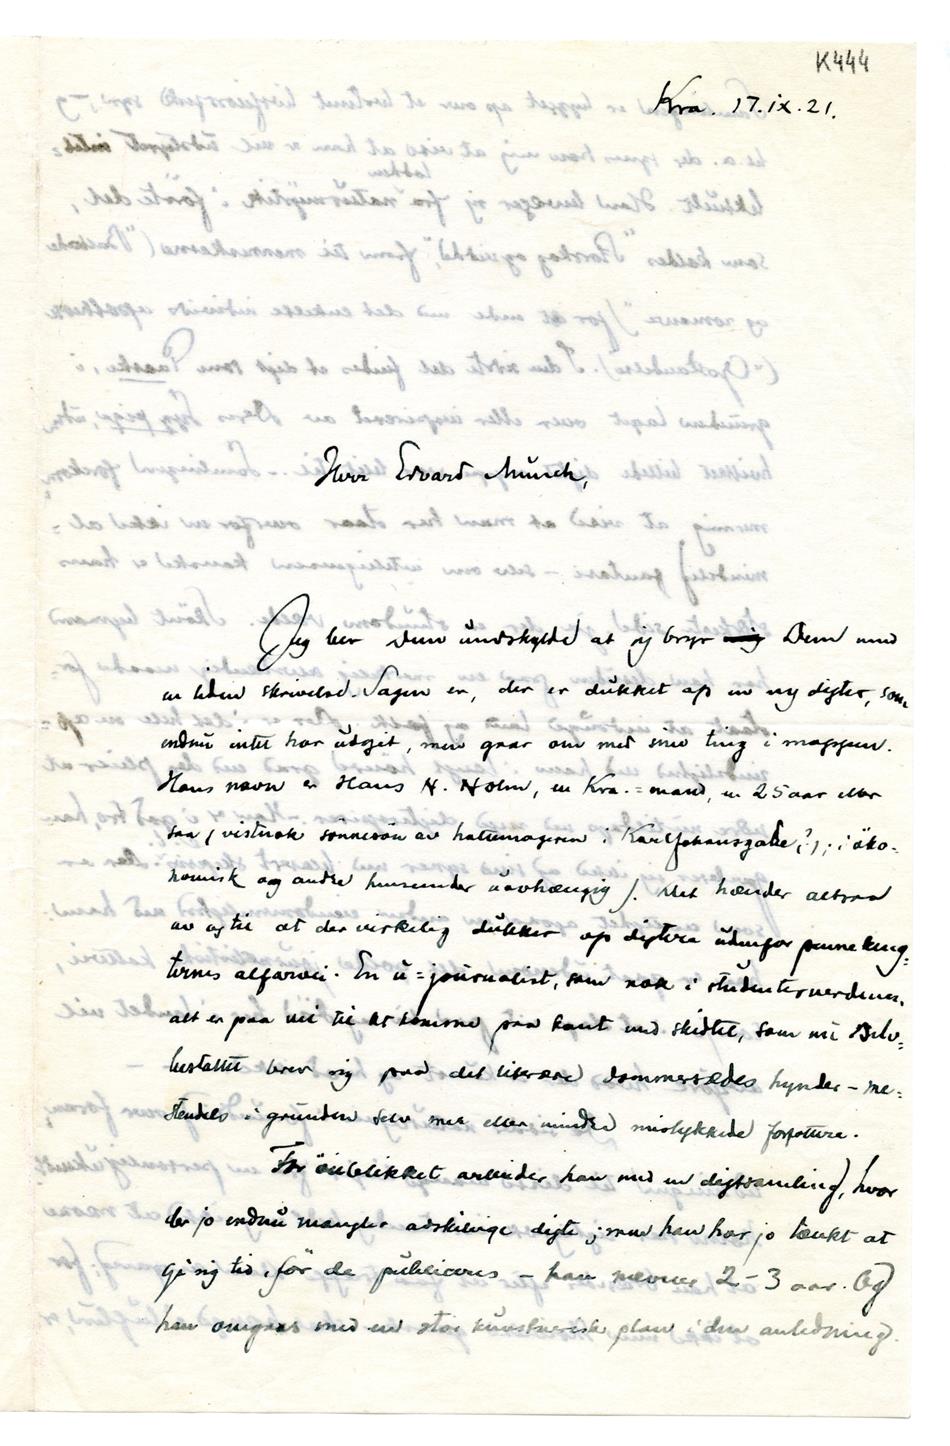 K444
Kra. 17.ix.21.
Herr Edvard Munch,
Jeg ber Dem undskylde at jeg bryr Dem med
en liden skrivelse. Sagen er, der er dukket op en ny digter, som
endnu intet har utgit, men gaar om med sine ting i mappen.
Hans navn er Hans H. Holm, en Kra.-mand, en 25 aar eller
saa, (vistnok sönnesön av hattemageren i Karl Johansgate?), i öko-
nomisk og andre henseender uavhængig). Det hænder altsaa
av og til at der virkelig dukker op digtere utenfor penneknegt-
ternes alfarvei. En u-journalist, som nok i studenterverdenen
alt er paa vei til at komme paa kant med skidtet, som nu selv-
bestaltet brer sig paa det literære dommersædes hynder – me-
stendels i grunden selv mer eller mindre mislykkede forfattere.
For öieblikket arbeider han med en digtsamling, hvor
der jo endnu mangler adskillige digte; men han har jo tænkt at
gi sig tid, för de publiceres – han nævner 2–3 aar. Og
han omgaas med en stor kunstnerisk plan i den anledning.